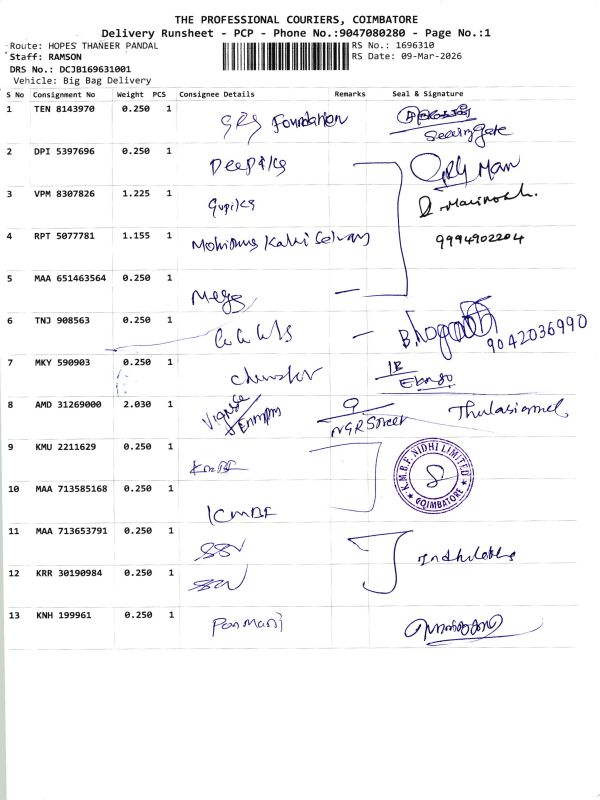 THE PROFESSIONAL COURIERS, COIMBATORE
Delivery Runsheet - PCP - Phone No.:9047080280 - Page No.:1
Route: HOPES THANEER PANDAL
RS No.: 1696310
Staff: RAMSON
RS Date: 09-Mar-2026
DRS No.: DCJB169631001
Vehicle: Big Bag Delivery
S No Consignment No Weight PCS Consignee Details Remarks Seal & Signature
1 TEN 8143970 0.250 1 GRG Foundation
2 DPI 5397696 0.250 1 Deepika
3 VPM 8307826 1.225 1
4 RPT 5077781 1.155 1 9994902204
5 MAA 651463564 0.250 1
6 TNJ 908563 0.250 1 9042036990
7 MKY 590903 0.250 1
8 AMD 31269000 2.030 1 NGR Street
9 KMU 2211629 0.250 1 KMBF
K.M.B.F. NIDHI LIMITED
COIMBATORE
10 MAA 713585168 0.250 1 KMBF
11 MAA 713653791 0.250 1 SSV
12 KRR 30190984 0.250 1 SSV
13 KNH 199961 0.250 1 Ponmani